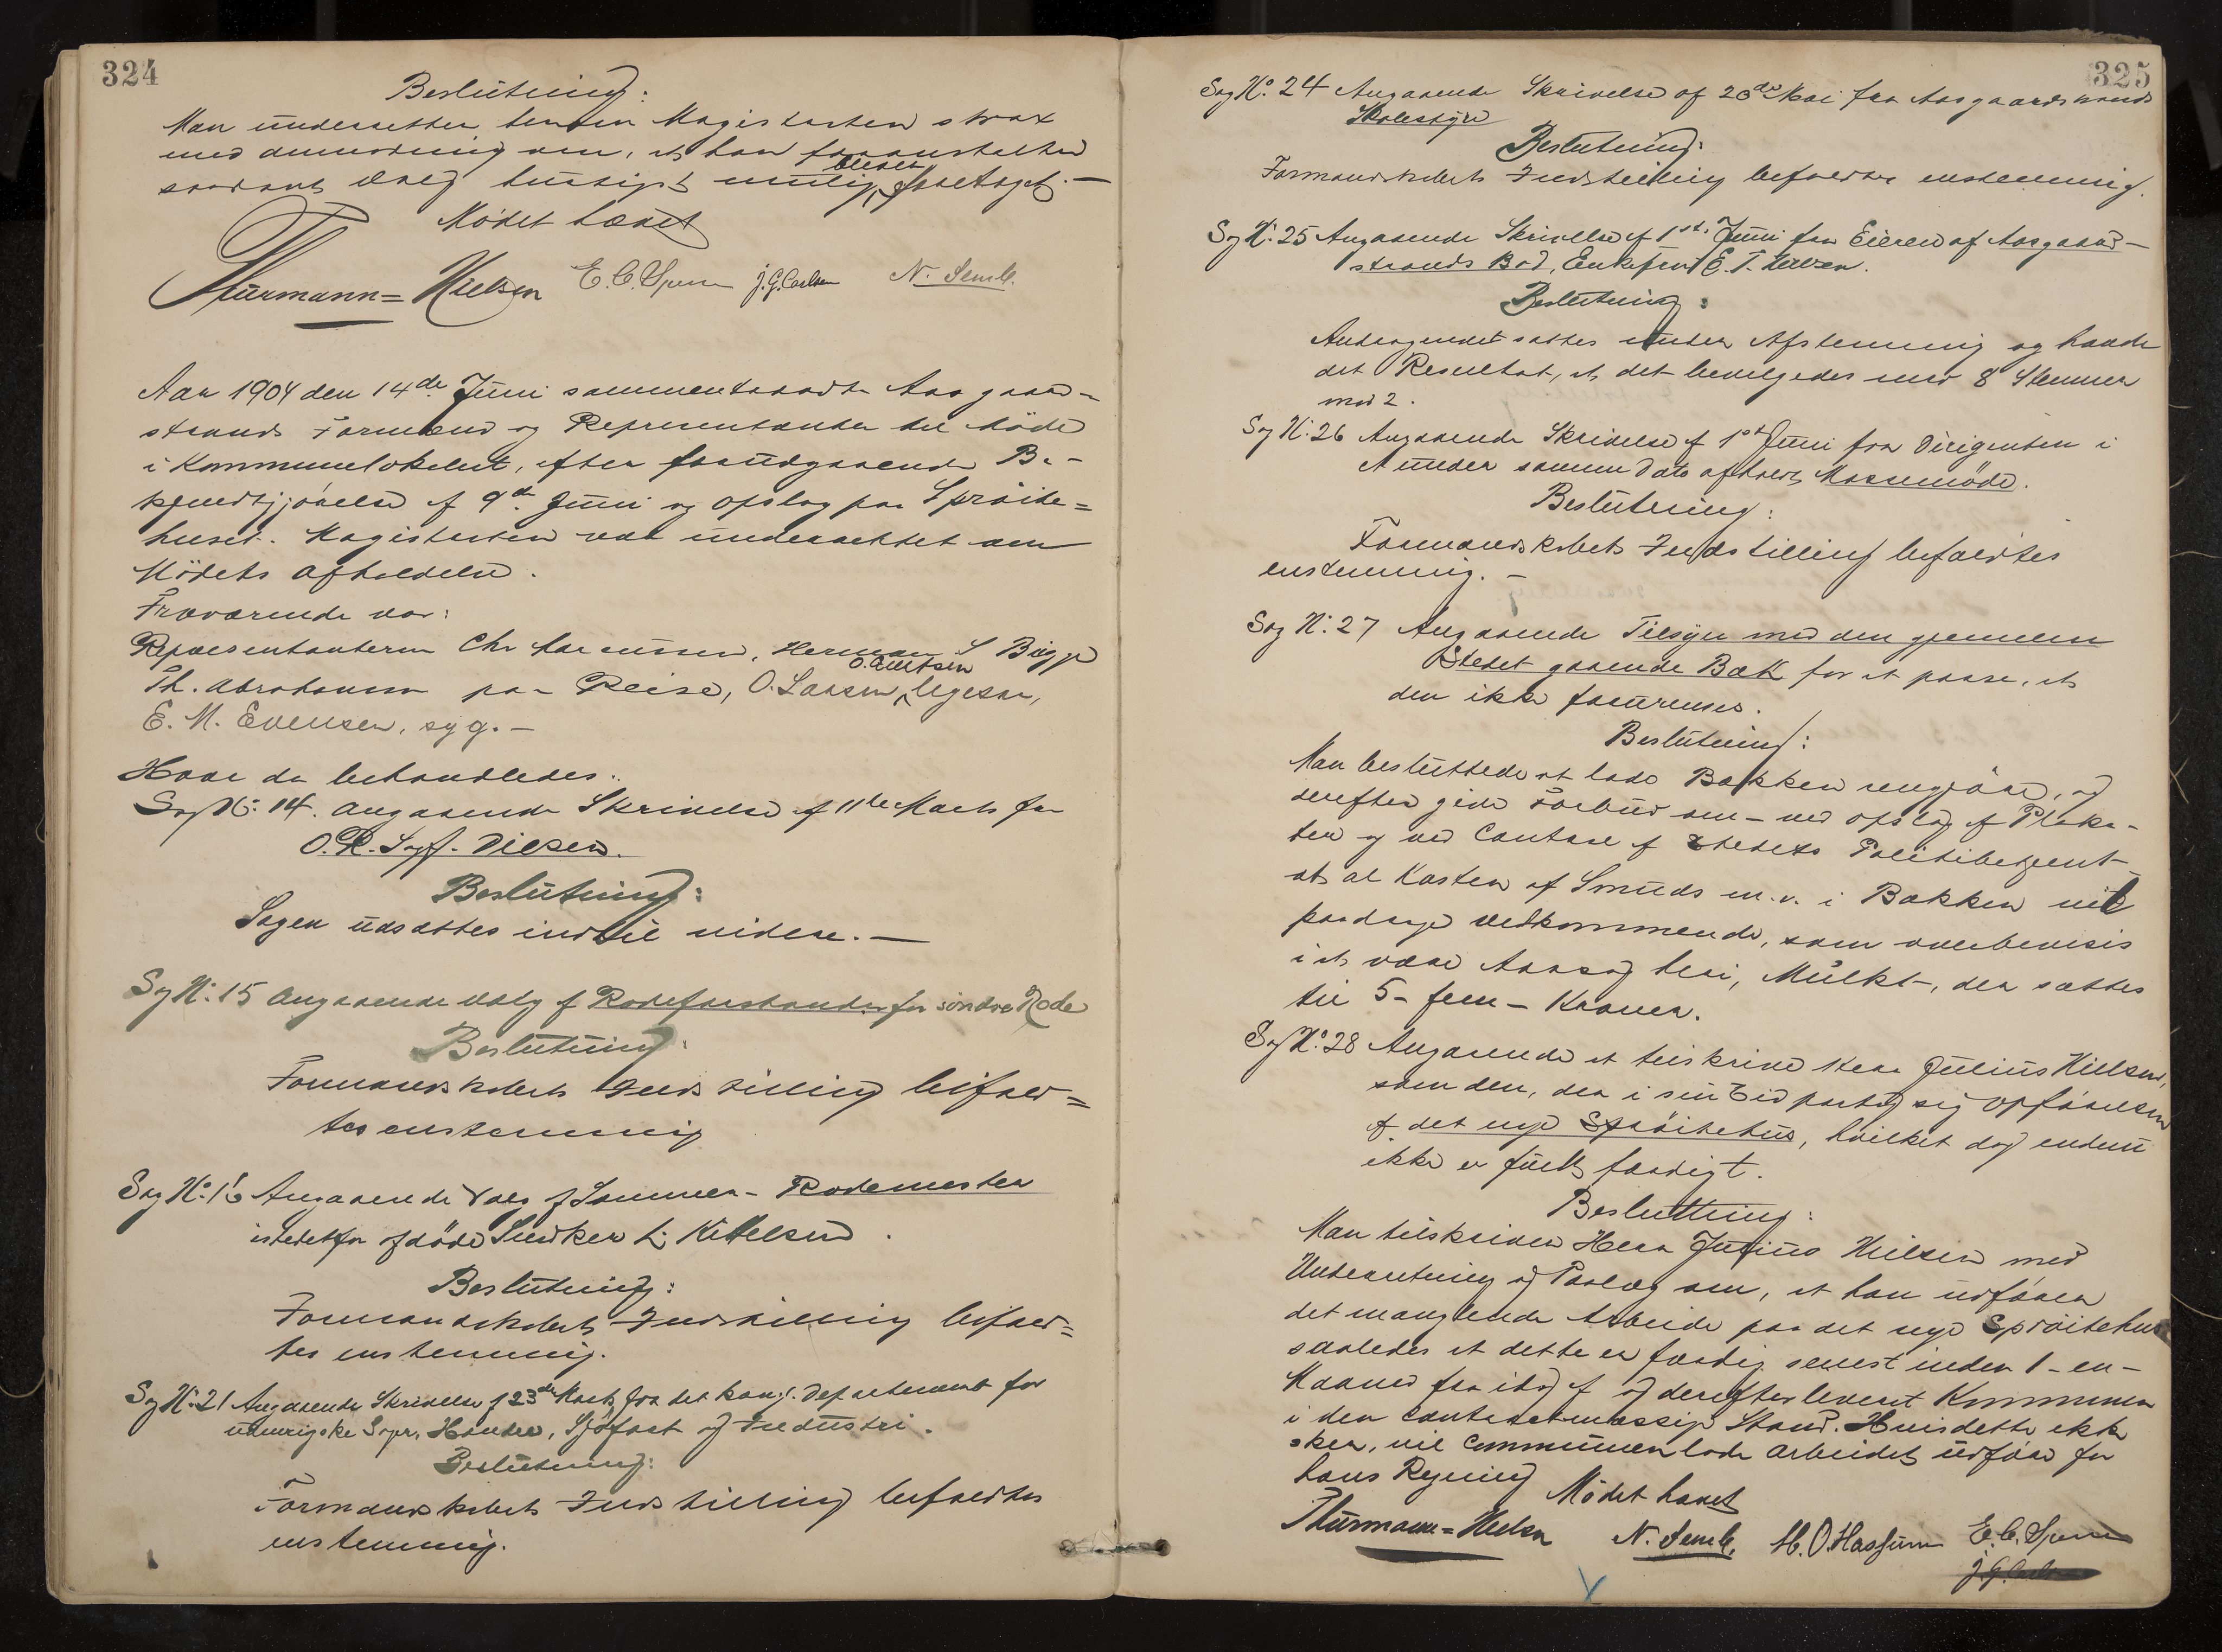 324
Beslutning:
Man underretter herom Magistraten strax
med anmodning om, at han foranstalter
saadant Valg hurtigst mulig bliver foretaget. —
Mødet hævet
Thurmann=Nielsen E. C. Spørn J. G. Carlsen N. Semb.
Aar 1904 den 14de Juni sammentraadte Aasgaard-
strands Formænd og Repræsentanter til Møde
i Kommunelokalet, efter forudgaaende Be-
kjendtgjørelse af 9de Juni og Opslag paa Sprøite=
huset. Magistraten var underrettet om
Mødets Afholdelse.
Fraværende var:
Repræsentanterne Chr. Herman S. Bigge
Th. Abrahamsen paa Reise, O. Larsen, O. ligesaa,
E. M. Evensen, syg. —
Hvor da behandledes:
Sag No. 14. angaaende Skrivelse af 11te Marts fra
O.R.Sagf. Dilsen.
Beslutning:
Sagen udsættes indtil videre. —
Sag No. 15 Angaaende Valg af Rodeforstander for søndre Rode
Beslutning:
Formandskabets Indstilling bifald=
tes enstemmig
Sag No. 16 Angaaende Valg af Sommer-Rodemester
istedetfor afdøde Snedker L. Kittelsen.
Beslutning:
Formandskabets Indstilling bifald=
tes enstemmig.
Sag No. 21 Angaaende Skrivelse af 23de Marts fra det kongl. Departement for
udenrigske Sager, Handel, Sjøfart og Industri.
Beslutning:
Formandskabets Indstilling bifaldtes
enstemmig.
325
Sag No. 24 Angaaende Skrivelse af 20de Mai fra Aasgaardstrands
Skolestyre
Beslutning:
Formandskabets Indstilling bifaldtes enstemmig.
Sag No. 25 Angaaende Skrivelse af 1ste Juni fra Eieren af Aasgaard-
strands Bad, Enkefru E. T.
Beslutning:
Andragendet sattes under Afstemning og havde
det Resultat, at det bevilgedes med 8 Stemmer
mod 2.
Sag No. 26 Angaaende Skrivelse af 1ste Juni fra Dirigenten i
et under samme Dato afholdt Massemøde.
Beslutning:
Formandskabets Indstilling bifaldtes
enstemmig. —
Sag No. 27 Angaaende Tilsyn med den gjennem
Stedet gaaende Bæk for at passe, at
den ikke forurenses.
Beslutning:
Man besluttede at lade Bækken rengjøre, og
derefter give Forbud om - ved Opslag af Plaka-
ter og ved Contare af Stedets Politibetjent -
at al Kasten af Smuds m.v. i Bækken vil
paadrage Vedkommende, som overbevises
i at være Aarsag heri, Mulkt -, der sættes
til 5 - fem - Kroner.
Sag No. 28 Angaaende at tilskrive Herr Julius Nielsen,
som den, der i sin Tid paatog sig Opførelsen
af det nye Sprøitehus, hvilket dog endnu
ikke er fuldt færdigt.
Beslutning:
Man tilskriver Herr Julius Nielsen med
Underretning og Paalæg om, at han udfører
det manglende Arbeide paa det nye Sprøitehus
saaledes at dette er færdig senest inden 1 - en -
Maaned fra idag af og derefter leveret Kommunen
i den contractmæssige Stand. Hvis dette ikke
sker, vil Communen lade Arbeidet udføre for
hans Regning
Mødet hævet
Thurmann=Nielsen N. Semb. M. O. Hassum E. C. Spørn
J. G. Carlsen